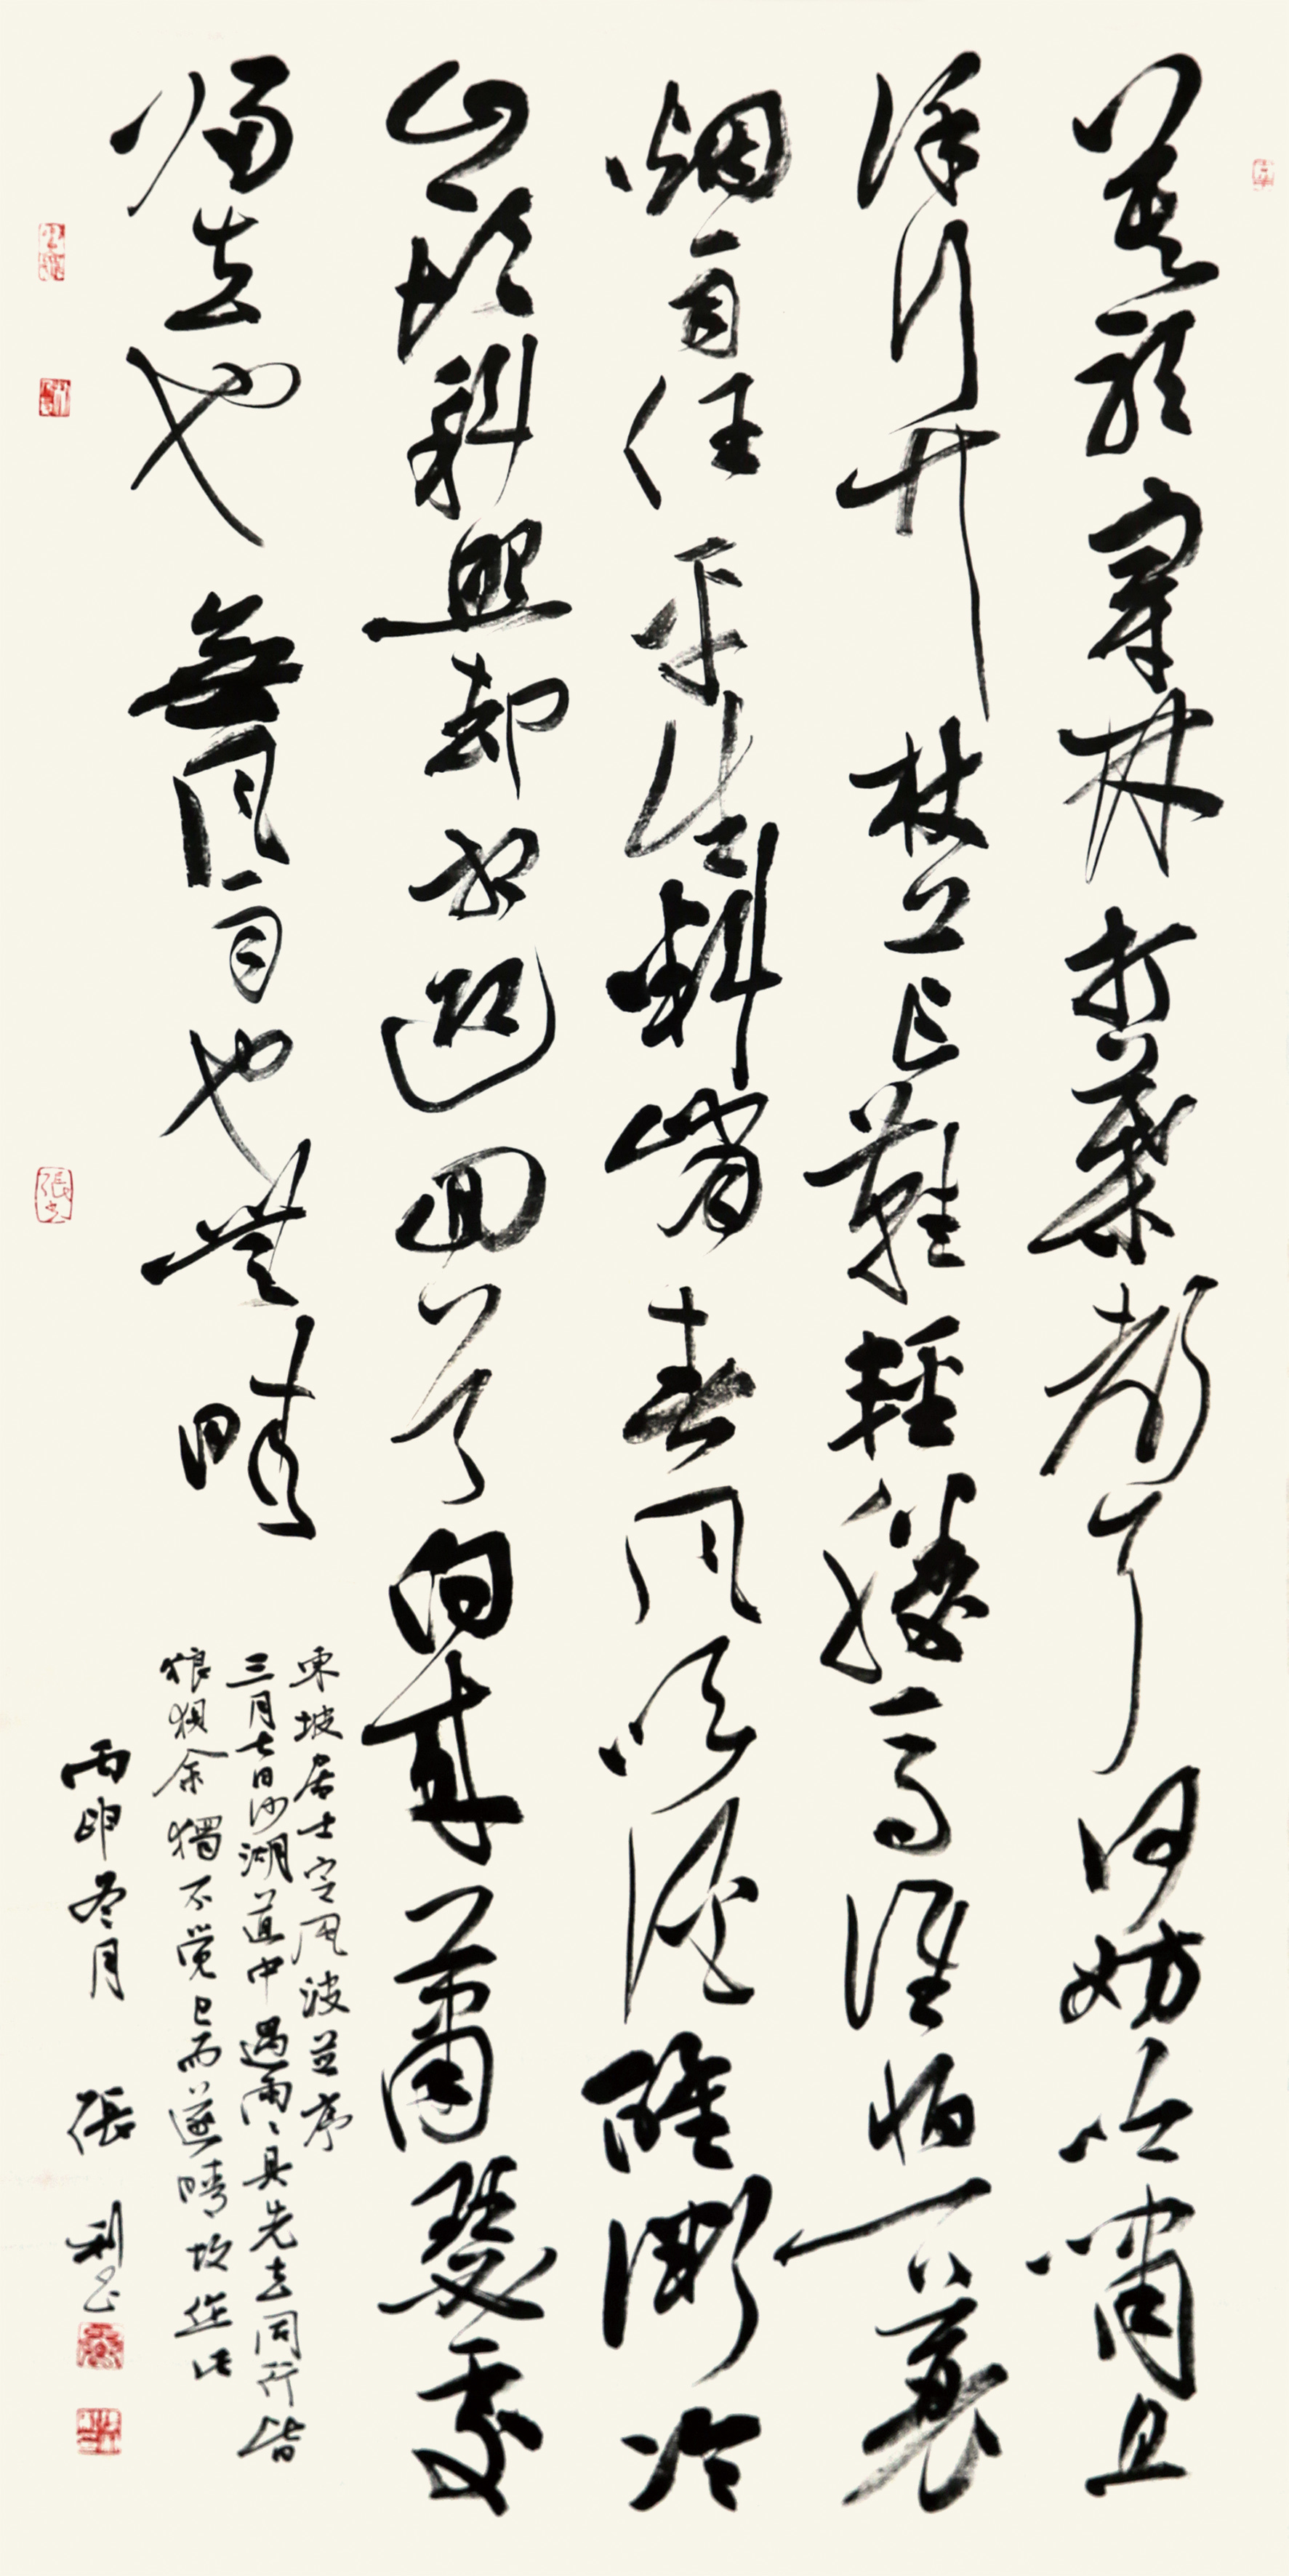 莫聽穿林打葉聲何妨吟嘯且
徐行竹杖芒鞋輕勝馬誰怕一蓑
烟雨任平生料峭春風吹酒醒微冷
山頭斜照却相迎回首向來蕭瑟處
歸去也無風雨也無晴
東坡居士定風波並序
三月七日沙湖道中遇雨〻具先去同行皆
狼狽余獨不覺已而遂晴故作此
丙申冬月 張利書